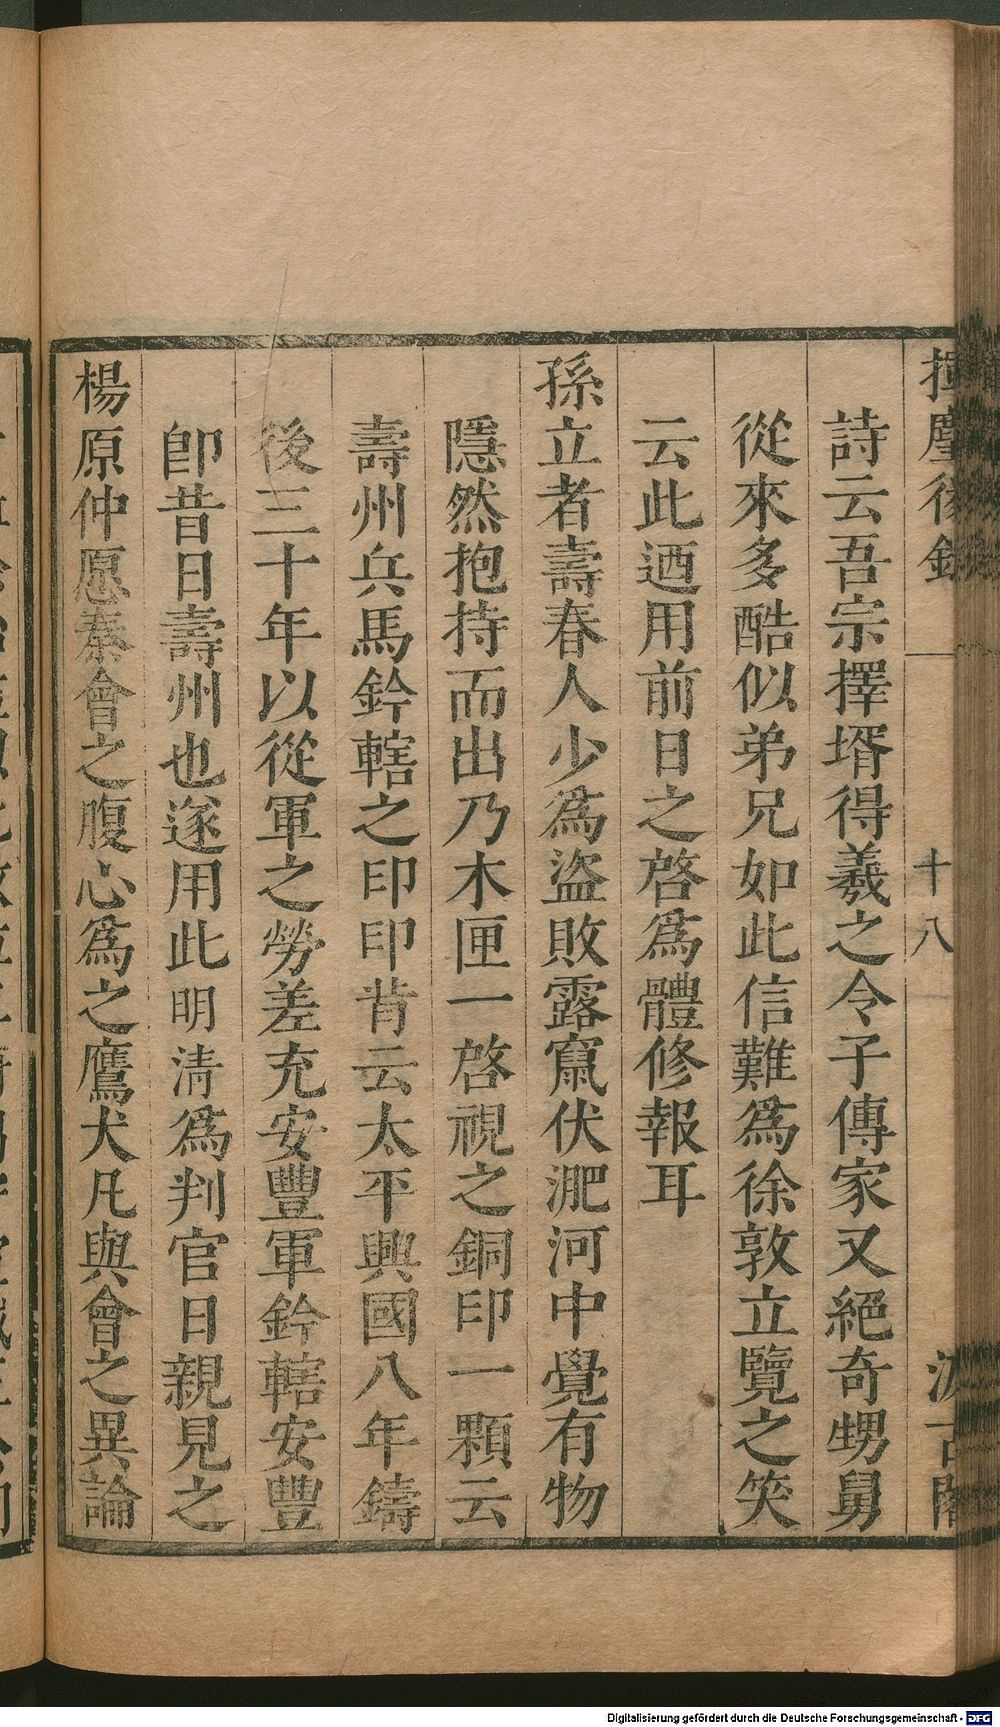 揮麈後錄
十八
汲古閣
詩云吾宗擇壻得羲之令子傳家又絕奇甥舅
從來多酷似弟兄如此信難爲徐敦立覽之笑
云此迺用前日之啓爲體修報耳
孫立者壽春人少爲盜敗露竄伏淝河中覺有物
隱然抱持而出乃木匣一啓視之銅印一顆云
壽州兵馬鈐轄之印印背云太平興國八年鑄
後三十年以從軍之勞差充安豐軍鈐轄安豐
卽昔日壽州也遂用此明清爲判官日親見之
楊原仲愿秦會之腹心爲之鷹犬凡與會之異論
Digitalisierung gefördert durch die Deutsche Forschungsgemeinschaft - DFG